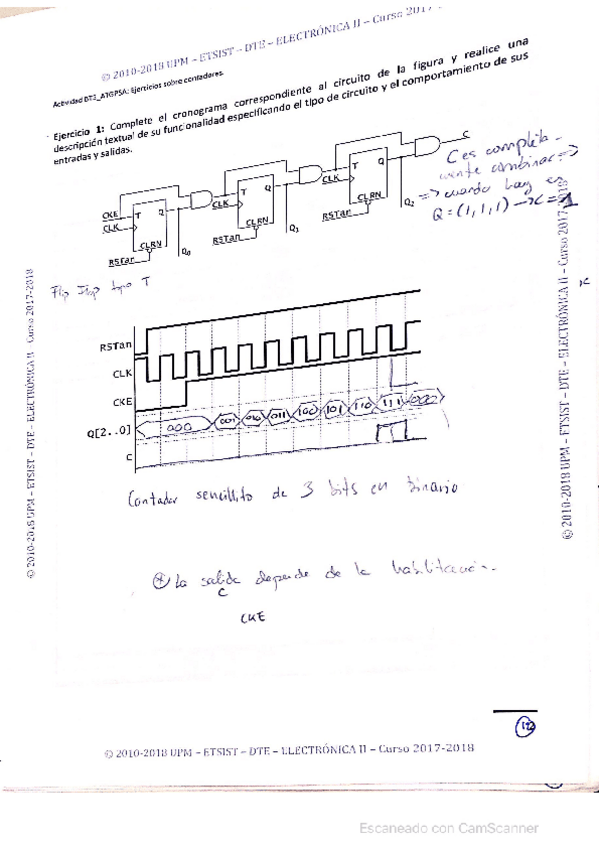 © 2010-2018 UPM – ETSIST – DTE – ELECTRÓNICA II – Curso 2017-
Ejercicio 1: Complete el cronograma correspondiente al circuito de la figura y realice una
descripción textual de su funcionalidad especificando el tipo de circuito y el comportamiento de sus
entradas y salidas.
C
C es completa-
mente combinar =>
=> cuando hay en
Q = (1, 1, 1) → C = 1
CKE
CLK
T Q
CLRN
RSTan
Q0
CLK
T Q
CLRN
RSTan
Q1
CLK
T Q
CLRN
RSTan
Q2
Flip Flop tipo T
RSTan
CLK
CKE
Q[2..0]
000 001 010 011 100 101 110 111 000
C
Contador sencillito de 3 bits en binario
* La salida depende de la habilitación.
C
CKE
© 2010-2018 UPM – ETSIST – DTE – ELECTRÓNICA II – Curso 2017-2018
© 2010-2018 UPM – ETSIST – DTE – ELECTRÓNICA II – Curso 2017-2018
© 2010-2018 UPM – ETSIST – DTE – ELECTRÓNICA II – Curso 2017-2018
Escaneado con CamScanner